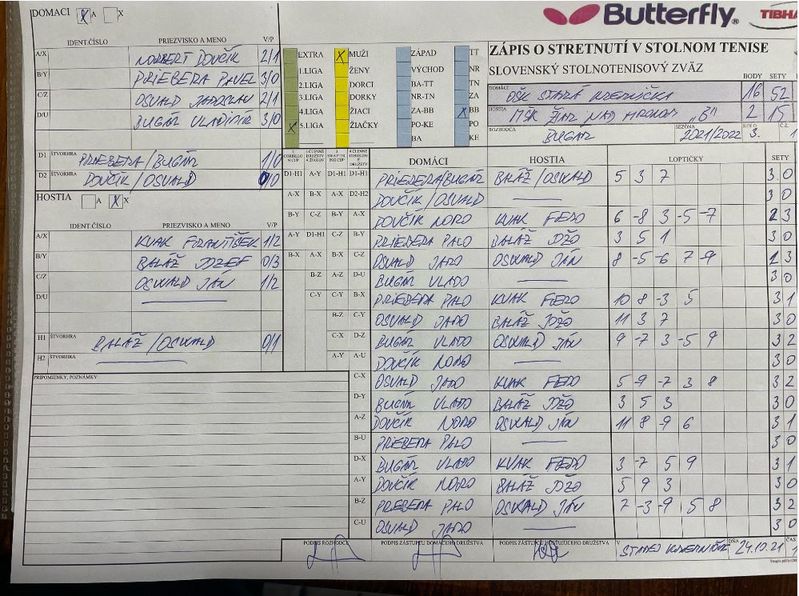 DOMÁCI X X
Butterfly TIBHA
IDENT.ČÍSLO PRIEZVISKO A MENO V/P
A/X NORBERT DOVČÍK 2/1
B/Y PRIEBERA PAVEL 3/0
C/Z OSVALD JAROSLAV 2/1
D/U BUGÁR VLADIMÍR 3/0
D1 ŠTVORHRA PRIEBERA/BUGÁR 1/0
D2 ŠTVORHRA DOVČÍK/OSVALD 0/0
HOSTIA X X
IDENT.ČÍSLO PRIEZVISKO A MENO V/P
A/X KVAK FRANTIŠEK 1/2
B/Y BALÁŽ JOZEF 0/3
C/Z OSWALD JÁN 1/2
D/U
H1 ŠTVORHRA BALÁŽ/OSWALD 0/1
H2 ŠTVORHRA
PRIPOMIENKY, POZNÁMKY
EXTRA X MUŽI ZÁPAD TT
1.LIGA ŽENY VÝCHOD NR
2.LIGA DORCI BA-TT TN
3.LIGA DORKY NR-TN ZA
4.LIGA ŽIACI ZA-BB X BB
X 5.LIGA ŽIAČKY PO-KE PO
BA KE
ZÁPIS O STRETNUTÍ V STOLNOM TENISE
SLOVENSKÝ STOLNOTENISOVÝ ZVÄZ
BODY SETY
DOMÁCI OŠK STARÁ KREMNIČKA 16 52
HOSTIA MŠK ŽIAR NAD HRONOM "B" 2 15
ROZHODCA BUGÁR SEZÓNA 2021/2022 3. 1
DOMÁCI HOSTIA LOPTIČKY SETY
D1-H1 A-Y D1-H1 D1-H1 PRIEBERA/BUGÁR BALÁŽ/OSWALD 5 3 7 3 0
A-X B-X A-X D2-H2 DOVČÍK/OSVALD 3 0
B-Y C-Z B-Y A-X DOVČÍK NORO KVAK FERO 6 -8 3 -5 -7 2 3
A-Y D1-H1 C-Z B-Y PRIEBERA PALO BALÁŽ DŽO 3 5 1 3 0
B-X A-X D-U C-Z OSVALD JARO OSWALD JÁN 8 -5 -6 7 -9 1 3
B-Z A-Z D-U BUGÁR VLADO 3 0
C-Y C-Y B-X PRIEBERA PALO KVAK FERO 10 8 -3 5 3 1
B-Z C-Y OSVALD JARO BALÁŽ DŽO 11 3 7 3 0
C-X D-Z BUGÁR VLADO OSWALD JÁN 9 -7 3 -5 9 3 2
A-Y A-U DOVČÍK NORO 3 0
C-X OSVALD JARO KVAK FERO 5 -9 -7 3 8 3 2
D-Y BUGÁR VLADO BALÁŽ DŽO 3 5 3 3 0
A-Z DOVČÍK NORO OSWALD JÁN 11 8 -9 6 3 1
B-U PRIEBERA PALO 3 0
D-X BUGÁR VLADO KVAK FERO 3 -7 5 9 3 1
A-Y DOVČÍK NORO BALÁŽ DŽO 5 9 3 3 0
B-Z PRIEBERA PALO OSWALD JÁN 7 -3 -9 5 8 3 2
C-U OSVALD JARO 3 0
PODPIS ROZHODCU PODPIS ZÁSTUPCU DOMÁCEHO DRUŽSTVA PODPIS ZÁSTUPCU HOSŤUJÚCEHO DRUŽSTVA V STAREJ KREMNIČKE DŇA 24.10.21